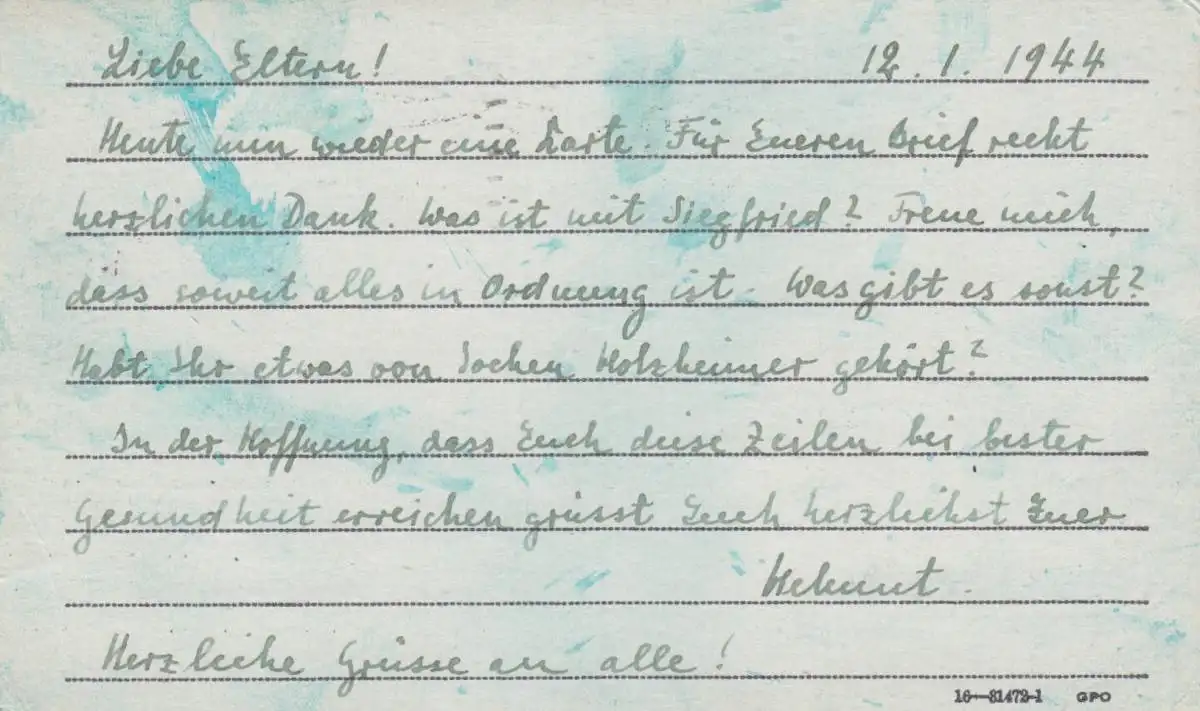 Liebe Eltern! 12. 1. 1944
Heute nun wieder eine Karte. Für Eueren Brief recht
herzlichen Dank. Was ist mit Siegfried? Freue mich,
dass soweit alles in Ordnung ist. Was gibt es sonst?
Habt Ihr etwas von Jochen Holzheimer gehört?
In der Hoffnung, dass Euch diese Zeilen bei bester
Gesundheit erreichen grüsst Euch herzlichst Euer
Helmut.
Herzliche Grüsse an alle!
16—81472-1 GPO